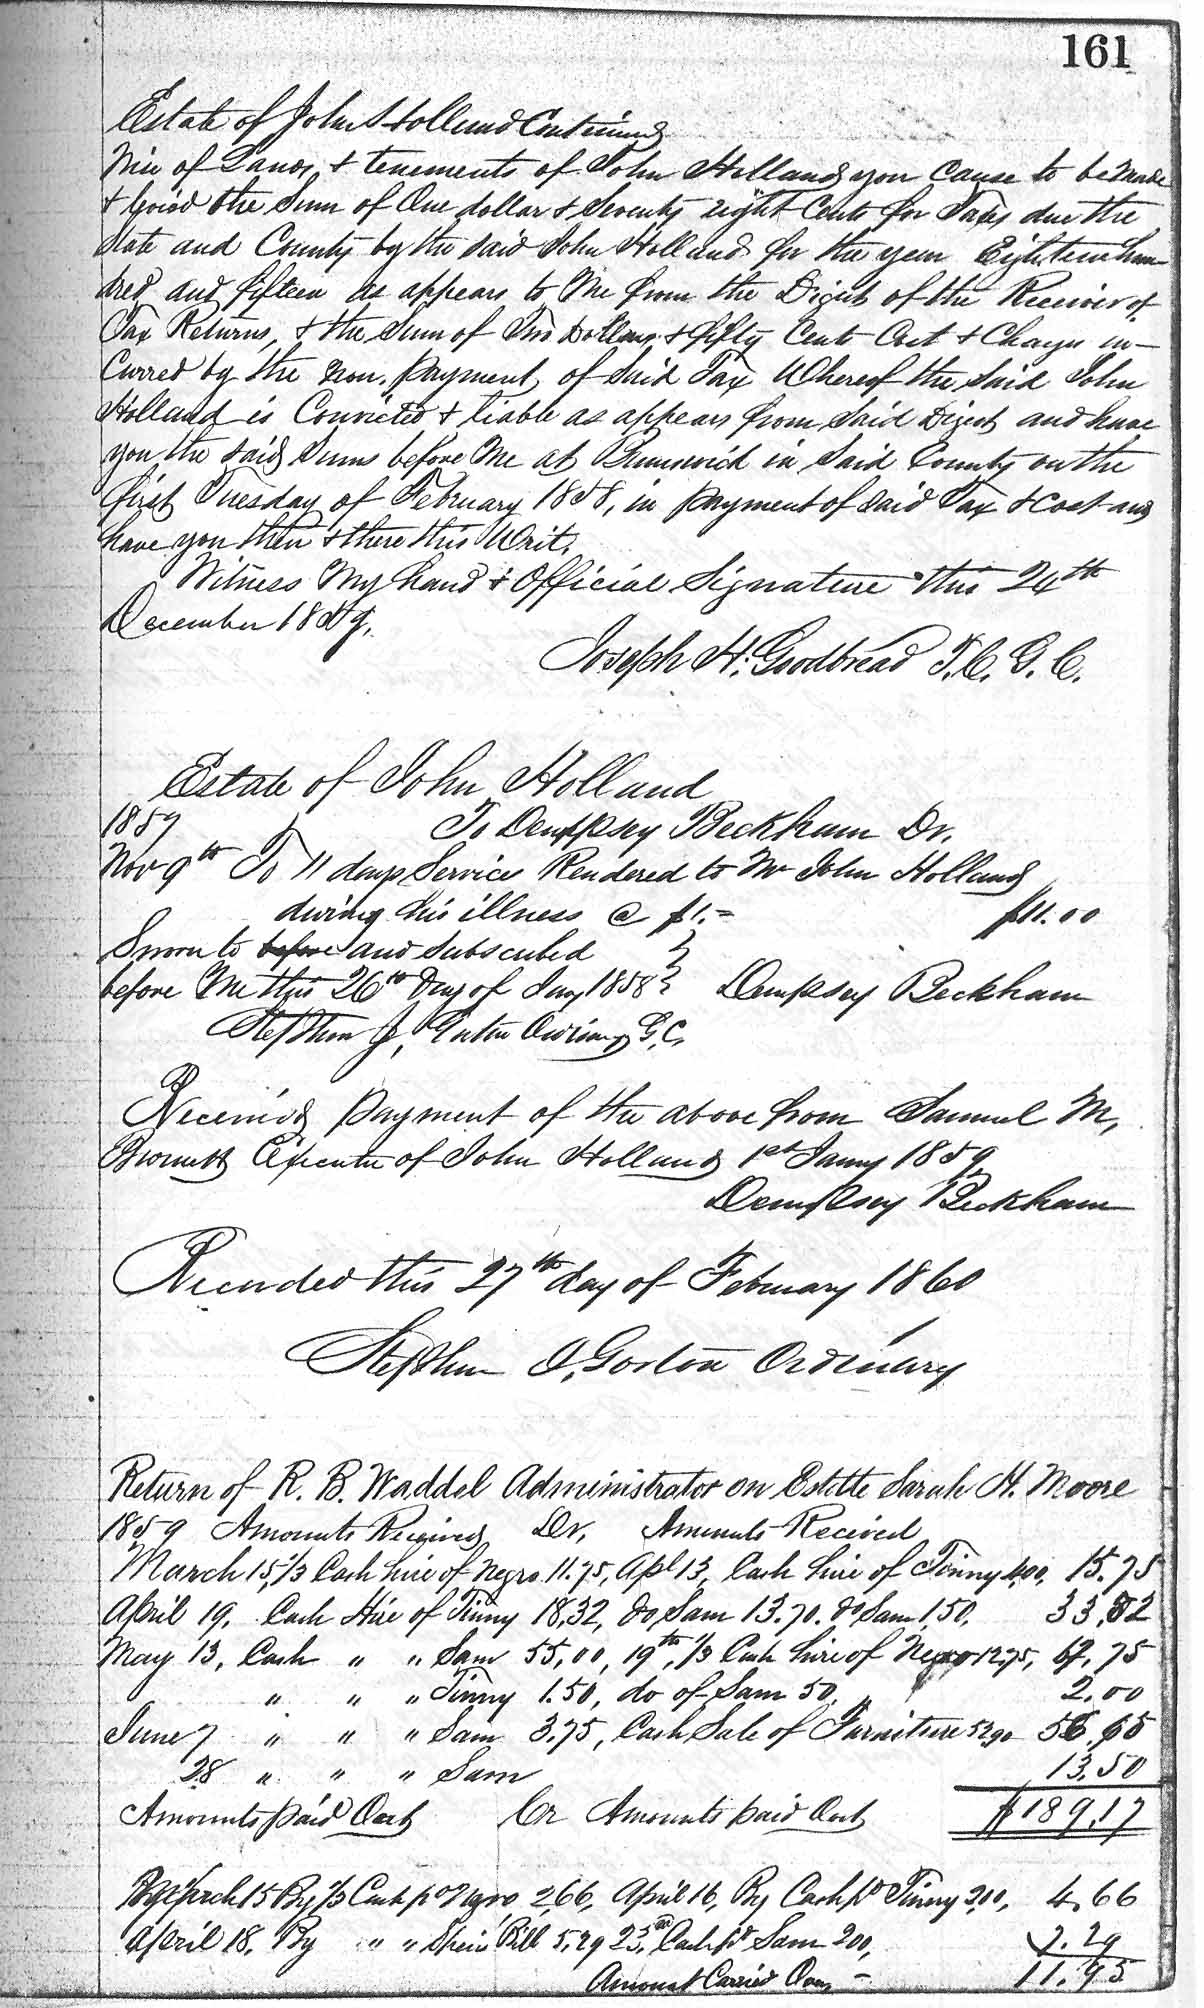 161
Estate of John Holland Continued
of Lands & tenements of John Holland you cause to be made
& levied the Sum of One dollar & Seventy eight Cents for Taxes due the
State and County by the said John Holland for the year Eighteen hun-
dred and fifteen as appears to Me from the Digest of the Receiver of
Tax Returns, & the Sum of Two Dollars & fifty Cents Cost & Charges in-
curred by the non. payment, of Said Tax Whereof the said John
Holland is Convicted & liable as appears from Said Digest and have
you the said Sums before Me at Brunswick in Said County on the
first Tuesday of February 1858, in payment of said Tax & cost and
have you then & there this Writ.
Witness My hand & Official Signature this 24th
December 1857.
Joseph H. Goodbread T. C. G. C.
Estate of John Holland
1857 To Dempsey Beckham Dr.
Nov 9th To 11 days Service Rendered to Mr John Holland
during his illness @ $1.= $11.00
Sworn to before and subscribed }
before Me this 26th Day of Jany 1858 } Dempsey Beckham
Stephen J, Gorton Ordinary G.C,
Received payment of the above from Samuel M,
Burnett Executor of John Holland 1st Janny 1859
Dempsey Beckham
Recorded this 27th day of February 1860
Stephen J, Gorton Ordinary
Return of R. B. Waddel Administrator on Estate Sarah H. Moore
1859 Amounts Received Dr, Amounts Recived
March 15, 1/3 Cash hire of Negro 11.75, Apl 13, Cash hire of Tinny 4,00, 15.75
April 19, Cash Hire of Tinny 18,32, do Sam 13.70. do Sam 1,50. 33,52
May 13, Cash " " Sam 55,00, 19th, 1/3 Cash hire of Negro 12.75, 67,75
" " " Tinny 1.50, do of Sam 50, " 2,00
June 7 " " " Sam 3.75, Cash Sale of Furniture 52,90 56,65
28 " " " Sam 13,50
Amounts paid Out Cr Amounts paid Out $189,17
March 15 By 1/3 Cash pd Negro 2,66, April 16, By Cash pd Tinny 2,00, 4,66
April 18, By " " Bill 5,29 23, Cash pd Sam 200, 7.29
Amount Carried Over - 11.95